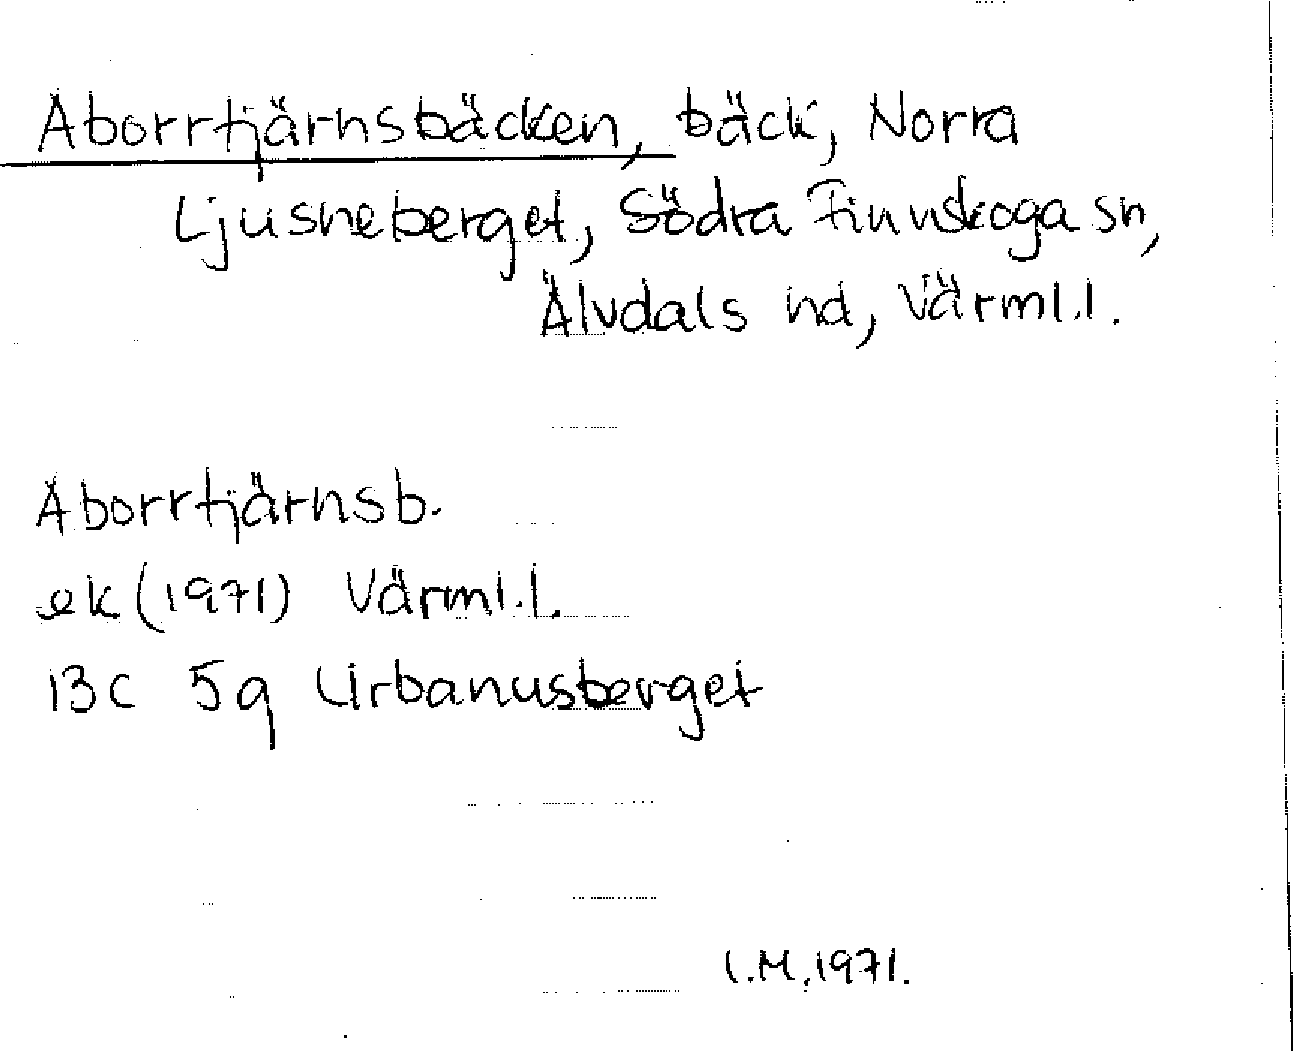 Aborrtjärnsbäcken, bäck, Norra
Ljusneberget, Södra Finnskoga sn,
Älvdals hd, Värml.l.
Aborrtjärnsb.
ek (1971) Värml.l.
13C 5g Urbanusberget
I.M. 1971.